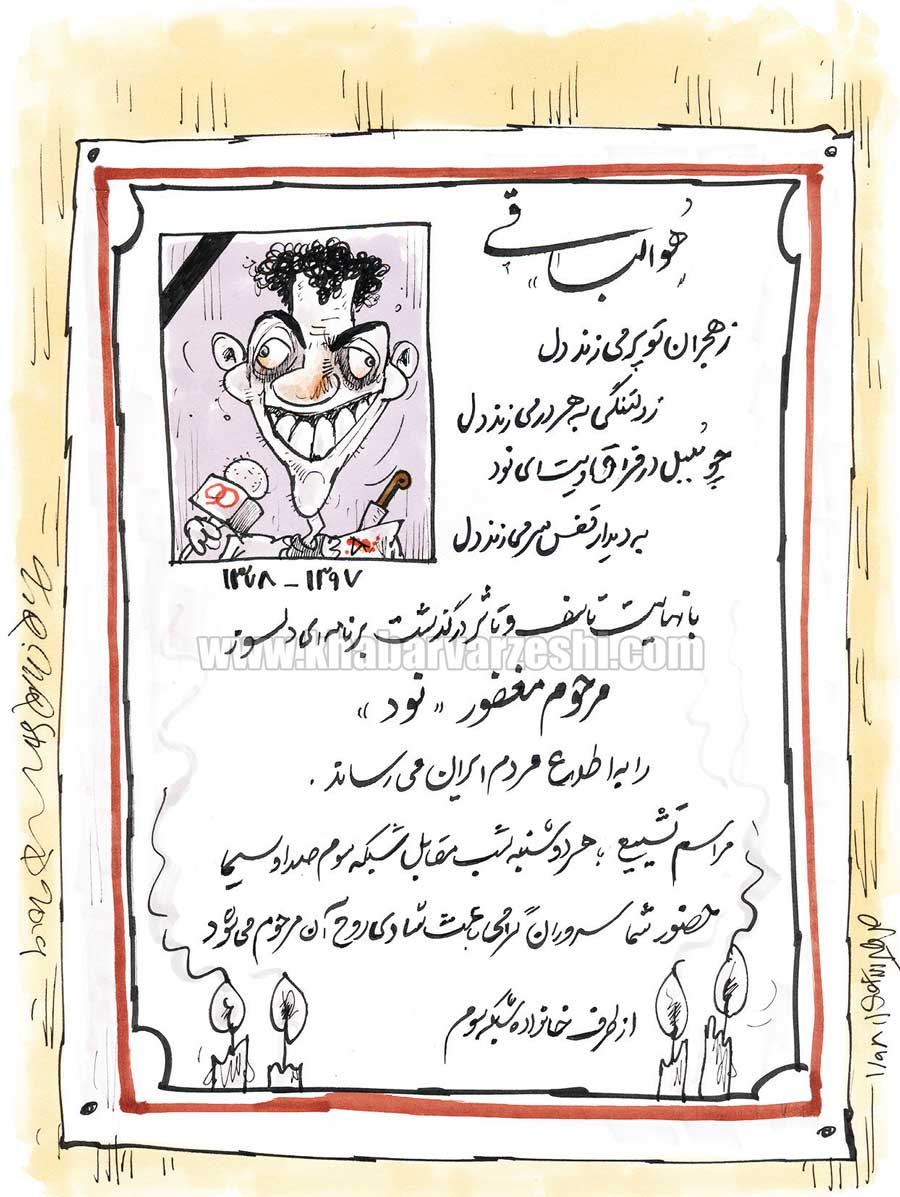 «هوالباقی»
ز هجران تو پر می زند دل
ز دلتنگی به هر در می زند دل
چو بلبل در فراقت ای نود
به دیدار قفس سر می زند دل
90
۱۳۷۸ - ۱۳۹۷
با نهایت تاسف و تاثر درگذشت برنامه ای دلسوز
www.khabarvarzeshi.com
مرحوم مغفور «نود»
را به اطلاع مردم ایران می رساند.
مراسم تشییع: هر دوشنبه شب مقابل شبکه سوم صدا و سیما
حضور شما سروران گرامی باعث شادی روح آن مرحوم می شود
از طرف خانواده شبکه سوم
2019